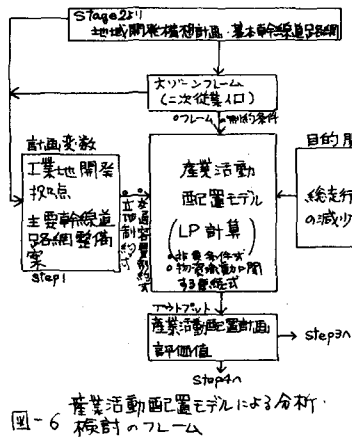 Stage2より
地域開発構想計画・基本幹線道路網
大ゾーンフレーム
(二次従業人口)
フレーム
制約条件
計画変数
工業地開発
拠点
主要幹線道
路網整備
案
step1
立地制約式
交通容量制約式
産業活動
配置モデル
(LP計算)
非負条件式
物資流動に関
する連続式
目的関
総走行
の減少
アウトプット
産業活動配置計画
評価値
step3へ
step4へ
図-6 産業活動配置モデルによる分析・
検討のフレーム